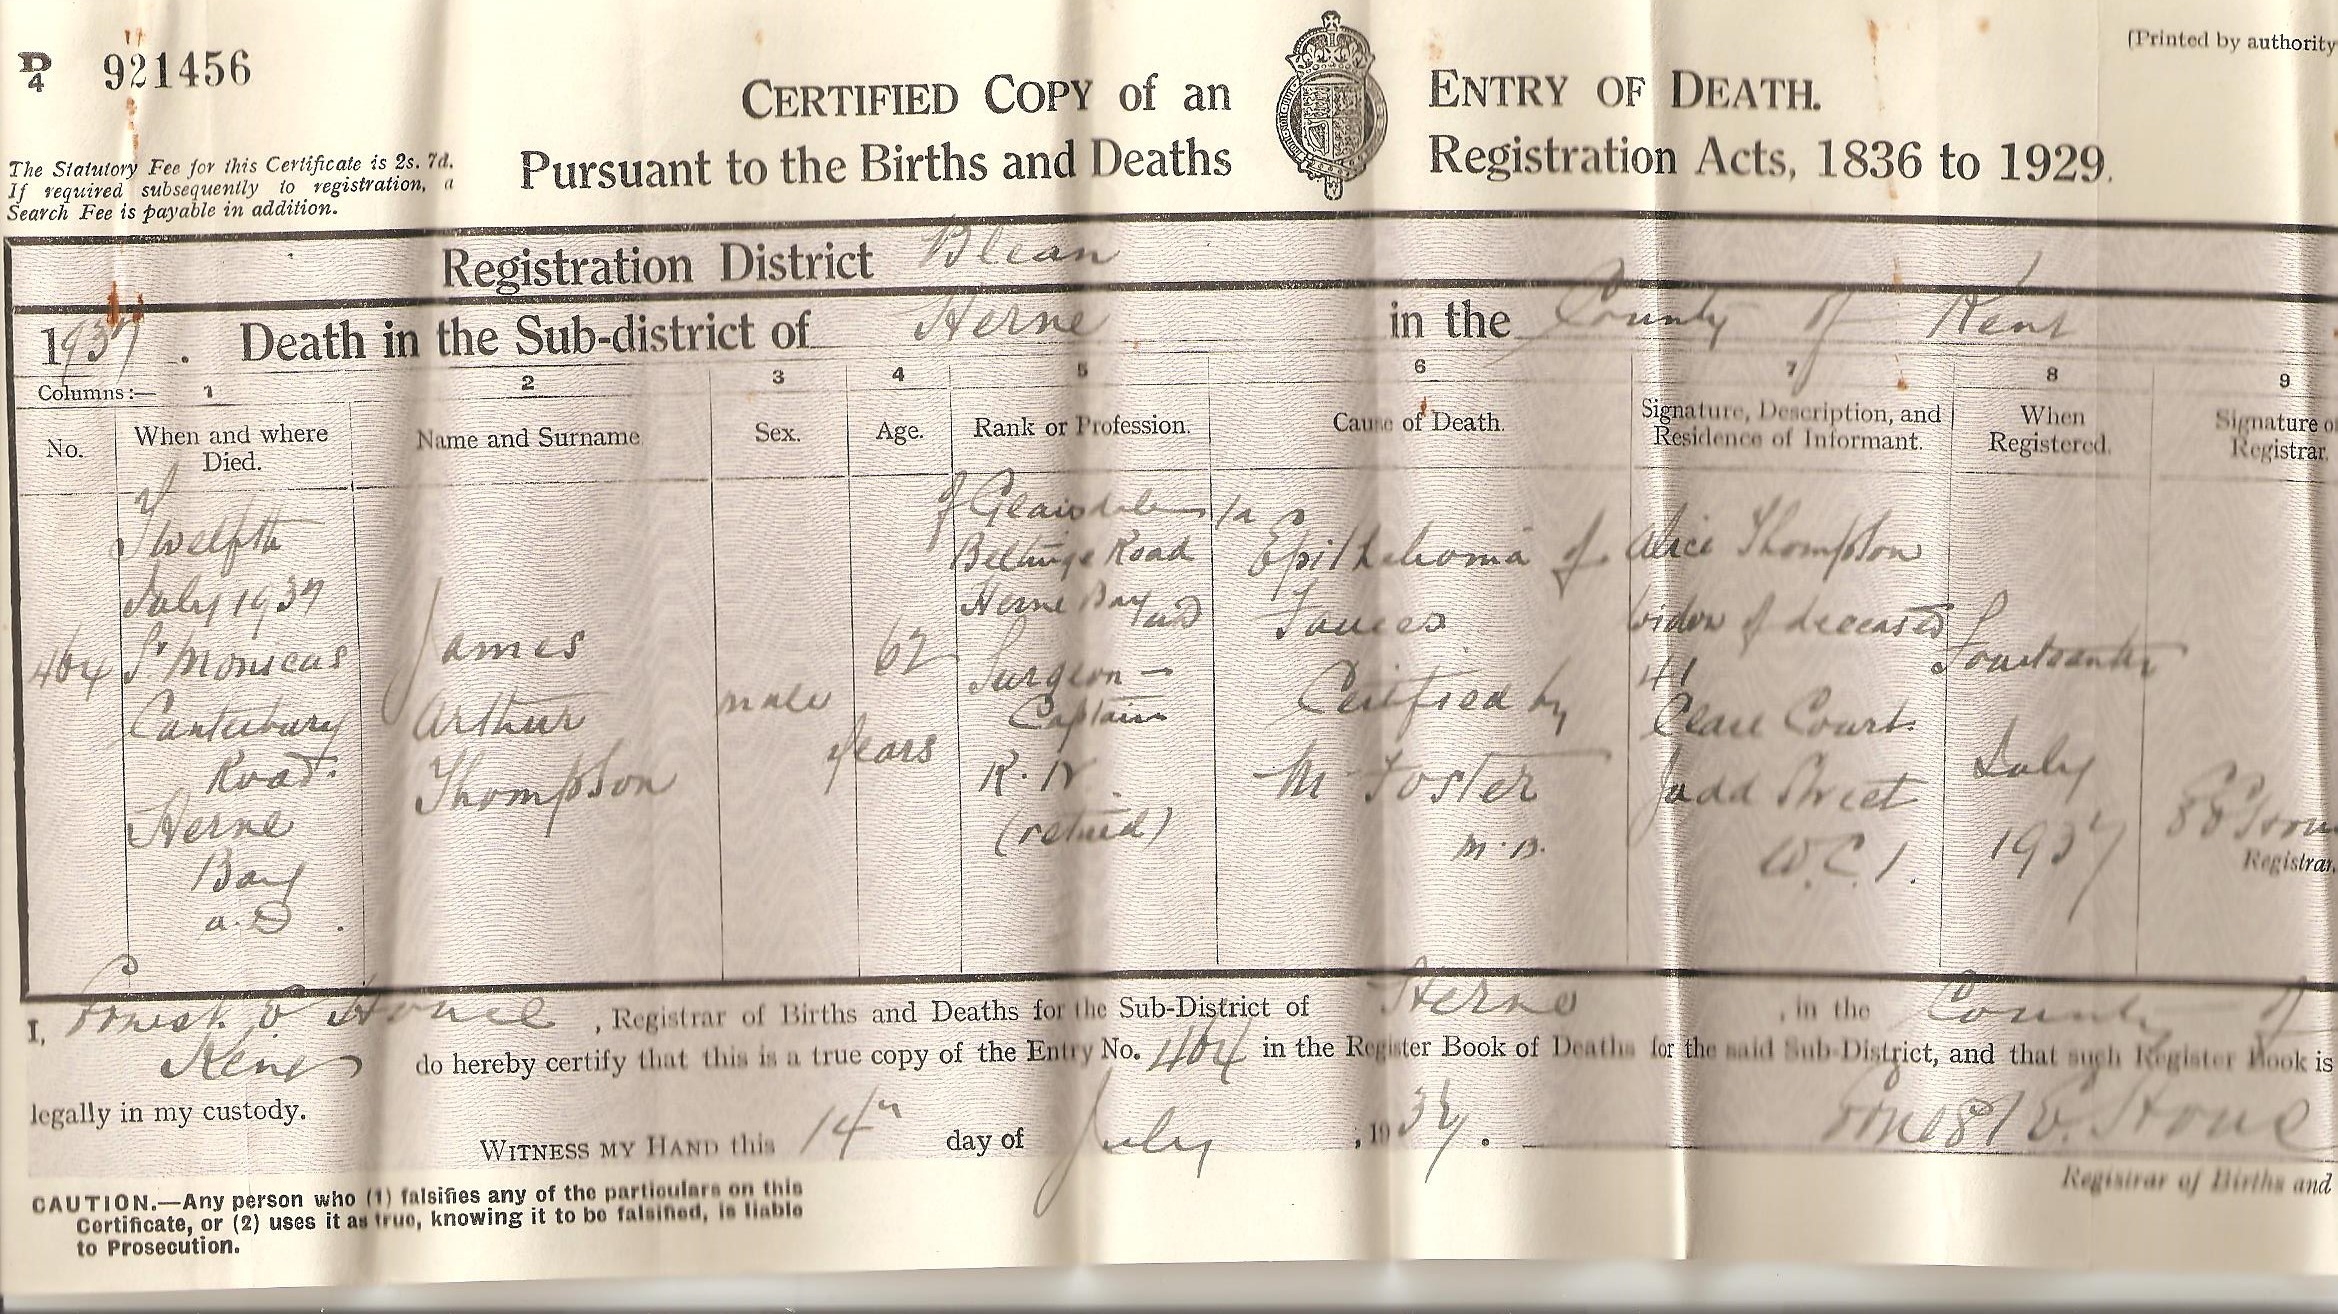 D
4 921456
(Printed by authority
CERTIFIED COPY of an ENTRY OF DEATH.
Pursuant to the Births and Deaths Registration Acts, 1836 to 1929.
The Statutory Fee for this Certificate is 2s. 7d.
If required subsequently to registration, a
Search Fee is payable in addition.
Registration District Blean
1937. Death in the Sub-district of Herne in the County of Kent
Columns:— 1 2 3 4 5 6 7 8 9
No.
When and where
Died.
Name and Surname
Sex.
Age.
Rank or Profession.
Cause of Death.
Signature, Description, and
Residence of Informant.
When
Registered.
Signature of
Registrar.
464
Twelfth
July 1937
St Monicas
Canterbury
Road
Herne
Bay
James
Arthur
Thompson
male
62
years
of
Beltinge Road
Herne Bay
Surgeon -
Captain
R. N
(retired)
1a
Epithelioma of
Fauces
Certified by
M Foster
M.B.
Alice Thompson
Widow of deceased
41
Clare Court
Judd Street
W.C.1.
Fourteenth
July
1937
Registrar.
I, Ernest E Stone, Registrar of Births and Deaths for the Sub-District of Herne, in the County of
Kent do hereby certify that this is a true copy of the Entry No. 464 in the Register Book of Deaths for the said Sub-District, and that such Register Book is
legally in my custody.
WITNESS MY HAND this 14th day of July, 1937.
Ernest E. Stone
Registrar of Births and
CAUTION.—Any person who (1) falsifies any of the particulars on this
Certificate, or (2) uses it as true, knowing it to be falsified, is liable
to Prosecution.